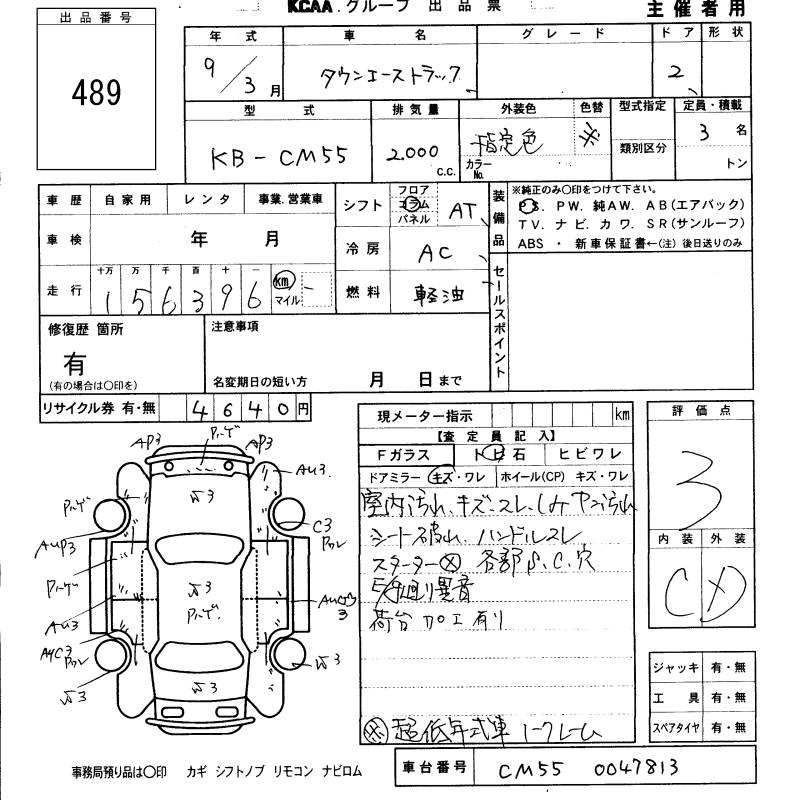 KCAA グループ 出品票
主催者用
出品番号
489
年式 車名 グレード ドア 形状
9/3月 タウンエーストラック 2
型式 排気量 外装色 色替 型式指定 定員・積載
KB-CM55 2.000 c.c. 指定色 カラーNo. 類別区分 3 名
トン
車歴 自家用 レンタ 事業.営業車
車検 年 月
走行 十万 万 千 百 十 一
1 5 6 3 9 6 km マイル
シフト フロア コラム パネル AT
冷房 AC
燃料 軽油
装備品
※純正のみ○印をつけて下さい。
PS. PW. 純AW. AB(エアバック)
TV. ナビ. カワ. SR(サンルーフ)
ABS ・ 新車保証書←(注)後日送りのみ
セールスポイント
修復歴 箇所
有
(有の場合は○印を)
注意事項
名変期日の短い方 月 日まで
リサイクル券 有・無 4 6 4 0 円
現メーター指示 km
【査定員記入】
Fガラス トビ石 ヒビワレ
ドアミラー キズ・ワレ ホイール(CP) キズ・ワレ
室内汚れ、キズ、スレ、しみ ヤニ汚れ
シート破れ、ハンドルスレ
スターター× 各部S.C.穴
異音
荷台加工有り
超低年式車 ノークレーム
評価点
3
内装 外装
C D
ジャッキ 有・無
工具 有・無
スペアタイヤ 有・無
AP3 ハゲ AP3
AU3
√3
ハゲ
C3
ワレ
AUP3
ハゲ
√3
ハゲ
AU3
AUC3
AYC3
ワレ
√3
√3
√3
事務局預り品は○印 カギ シフトノブ リモコン ナビロム
車台番号 CM55 0047813